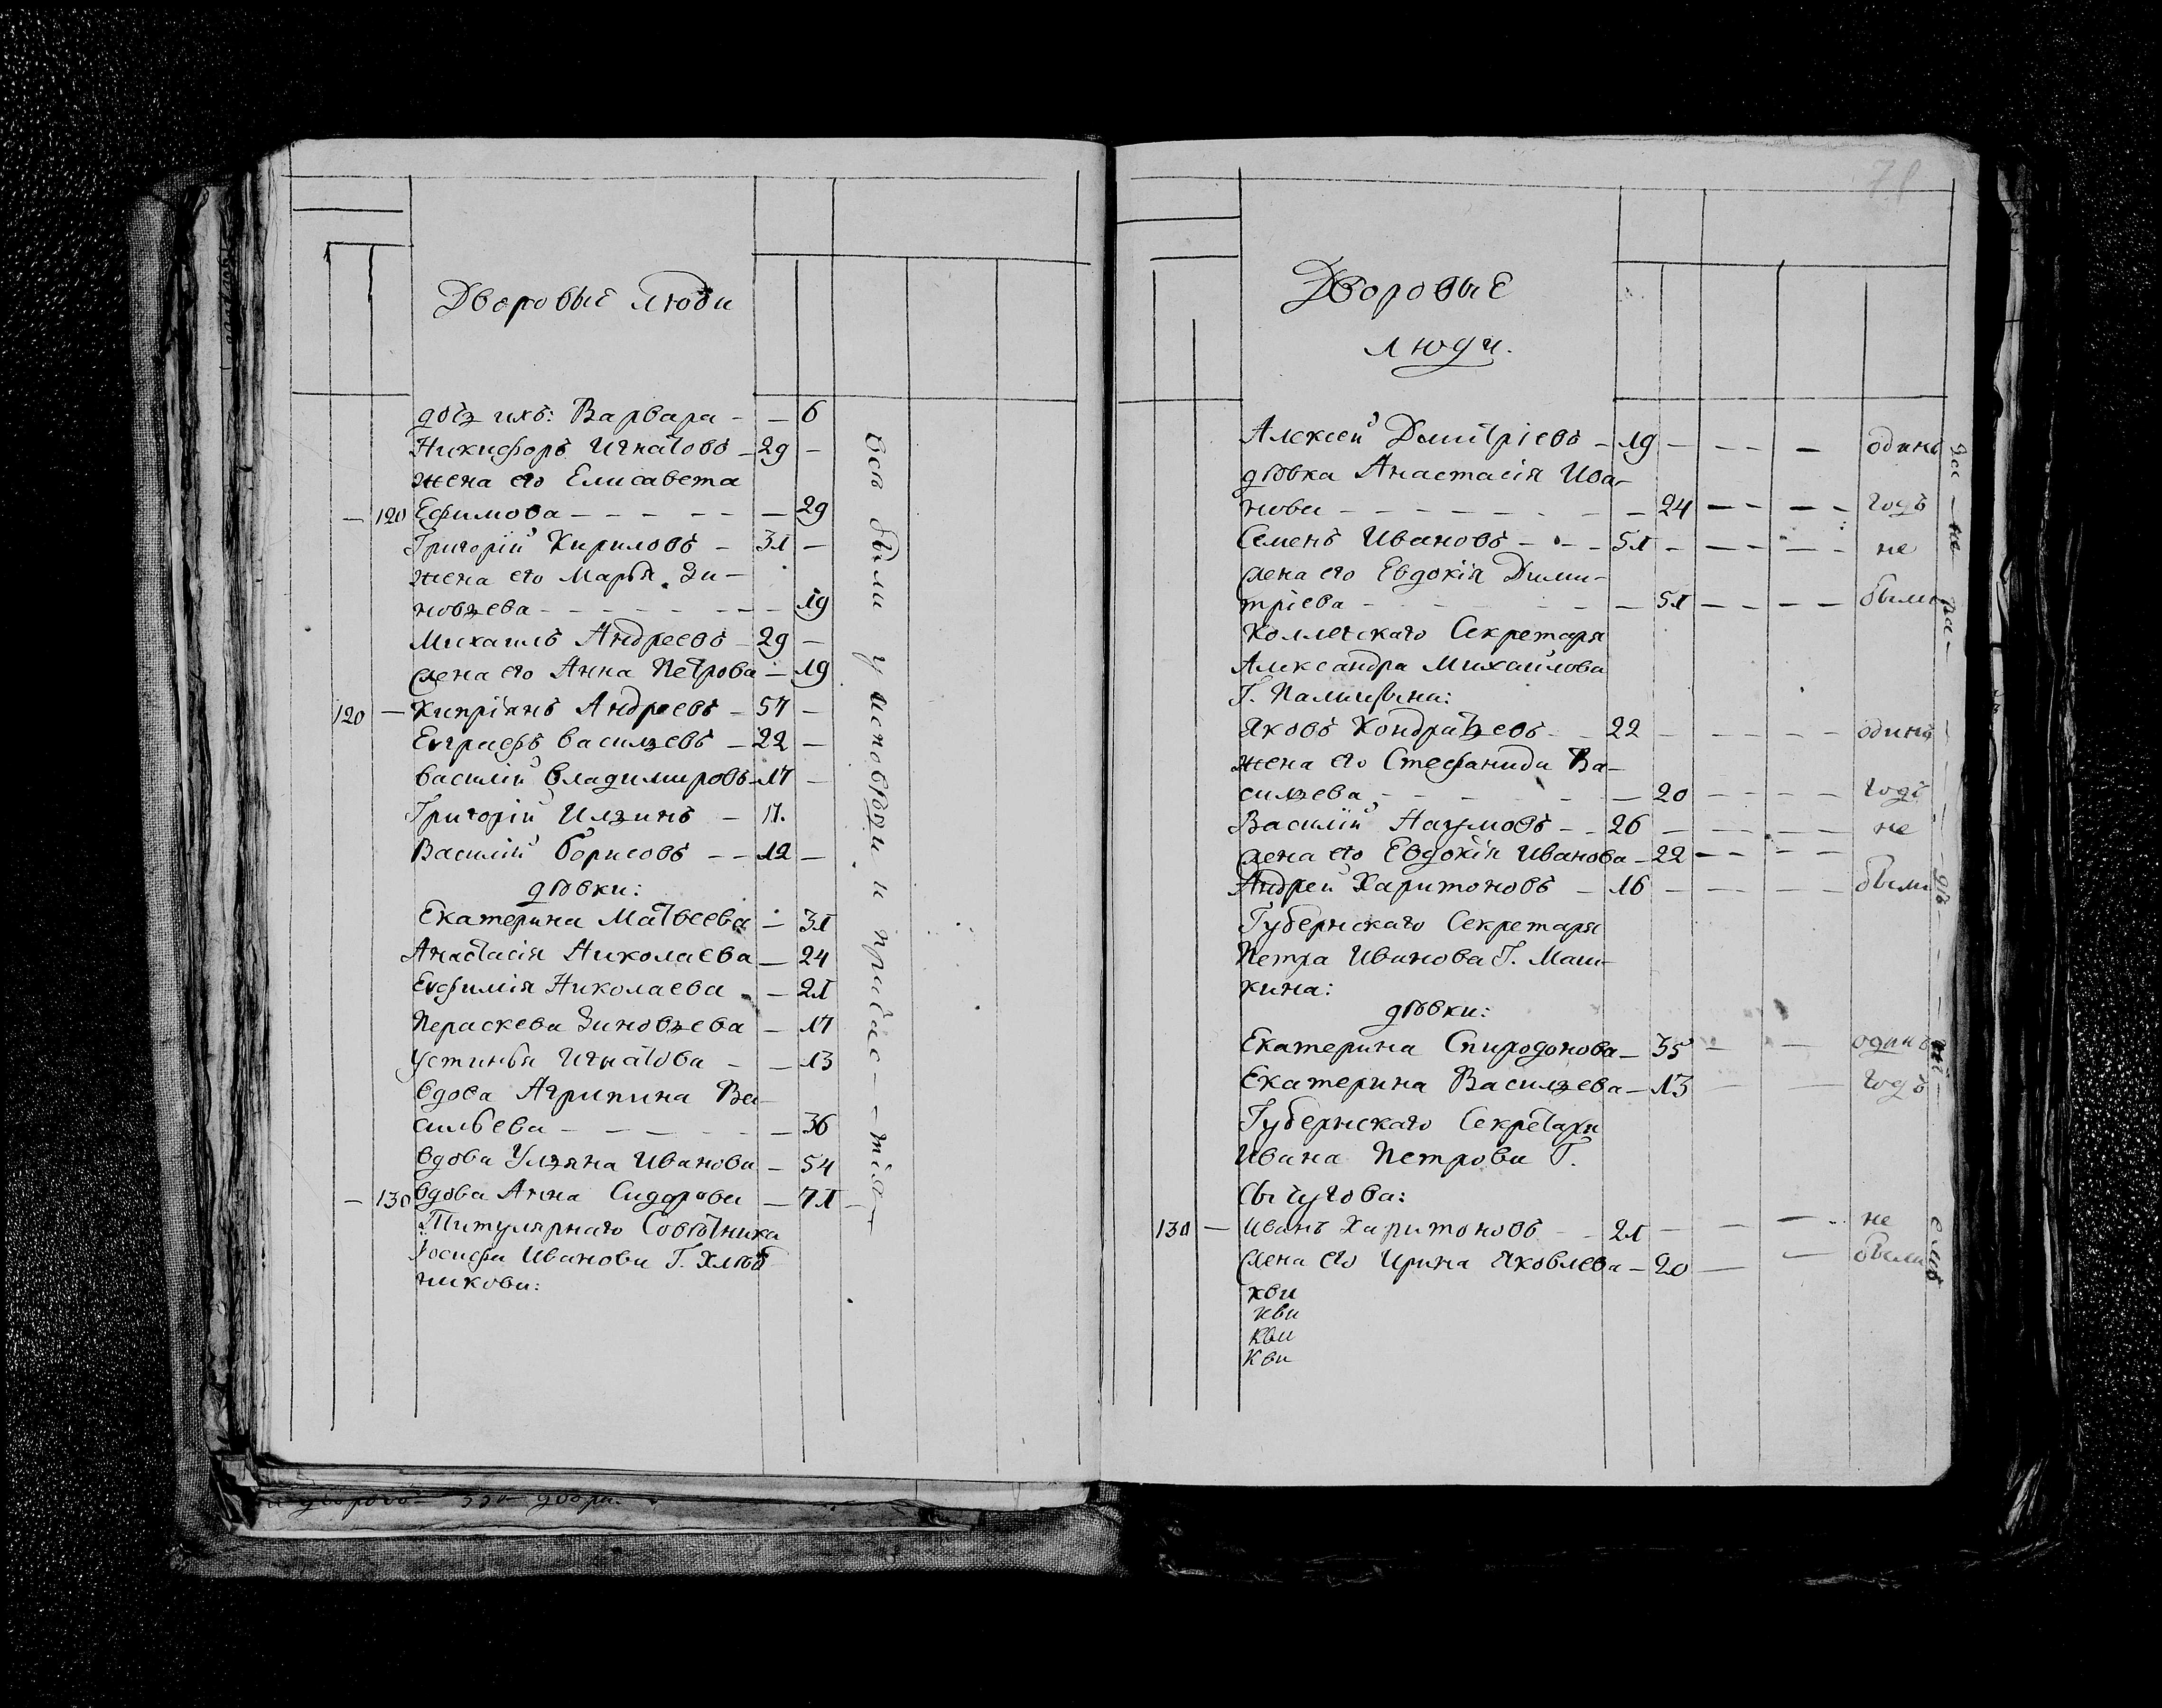 Дворовые люди
дочь ихъ: Варвара - - 6
Никифоръ Игнатовъ - 29 -
жена его Елисавета
- 120 Ефимова - - - - - - 29
Григорій Кириловъ - 31 -
жена его Марья Зи-
новьева - - - - - - - 19
Михаилъ Андреевъ - 29 -
жена его Анна Петрова - 19
120 - Кипріянъ Андреевъ - 57 -
Евграфъ Васильевъ - 22 -
Василій Владимировъ - 17 -
Григорій Ильинъ - 17.
Василій Борисовъ - - 12 -
дѣвки:
Екатерина Матвеева - 31
Анастасія Николаева - 24
Евфимія Николаева - 21
Пераскева Зиновьева - 17
Устинья Игнатова - - 13
вдова Агрипина Ва-
сильева - - - - - - 36
вдова Ульяна Иванова - 54
- 130 вдова Анна Сидорова - 71 -
Титулярнаго Совѣтника
Іосифа Иванова Г. Хлѣб
никова:
всѣ были у исповѣди и причас - - тія -
78
Дворовые
люди.
Алексей Дмитріевъ - 19 - - - - одинъ
дѣвка Анастасія Ива-
нова - - - - - - - - 24 - - - - годъ
Семенъ Ивановъ - - - 51 - - - - - не
жена его Евдокія Дими-
тріева - - - - - 51 - - - - были
Коллегскаго Секретаря
Александра Михаилова
Г. Палицына:
Яковъ Кондратьевъ - - 22 - - - - - одинъ
жена его Стефанида Ва-
сильева - - - - - - 20 - - - - годъ
Василій Наумовъ - - 26 - - - - - не
жена его Евдокія Иванова - 22 - - - -
Андрей Харитоновъ - 16 - - - - - были
Губернскаго Секретаря
Петра Иванова Г. Маш-
кина:
дѣвки:
Екатерина Спиродонова - 35 - - одинъ
Екатерина Васильева - 13 - - годъ
Губернскаго Секретаря
Ивана Петрова Г.
Сычугова:
130 - Иванъ Харитоновъ - - 21 - - - - не
жена его Ирина Яковлева - 20 - - были
кви
кви
кви
кви